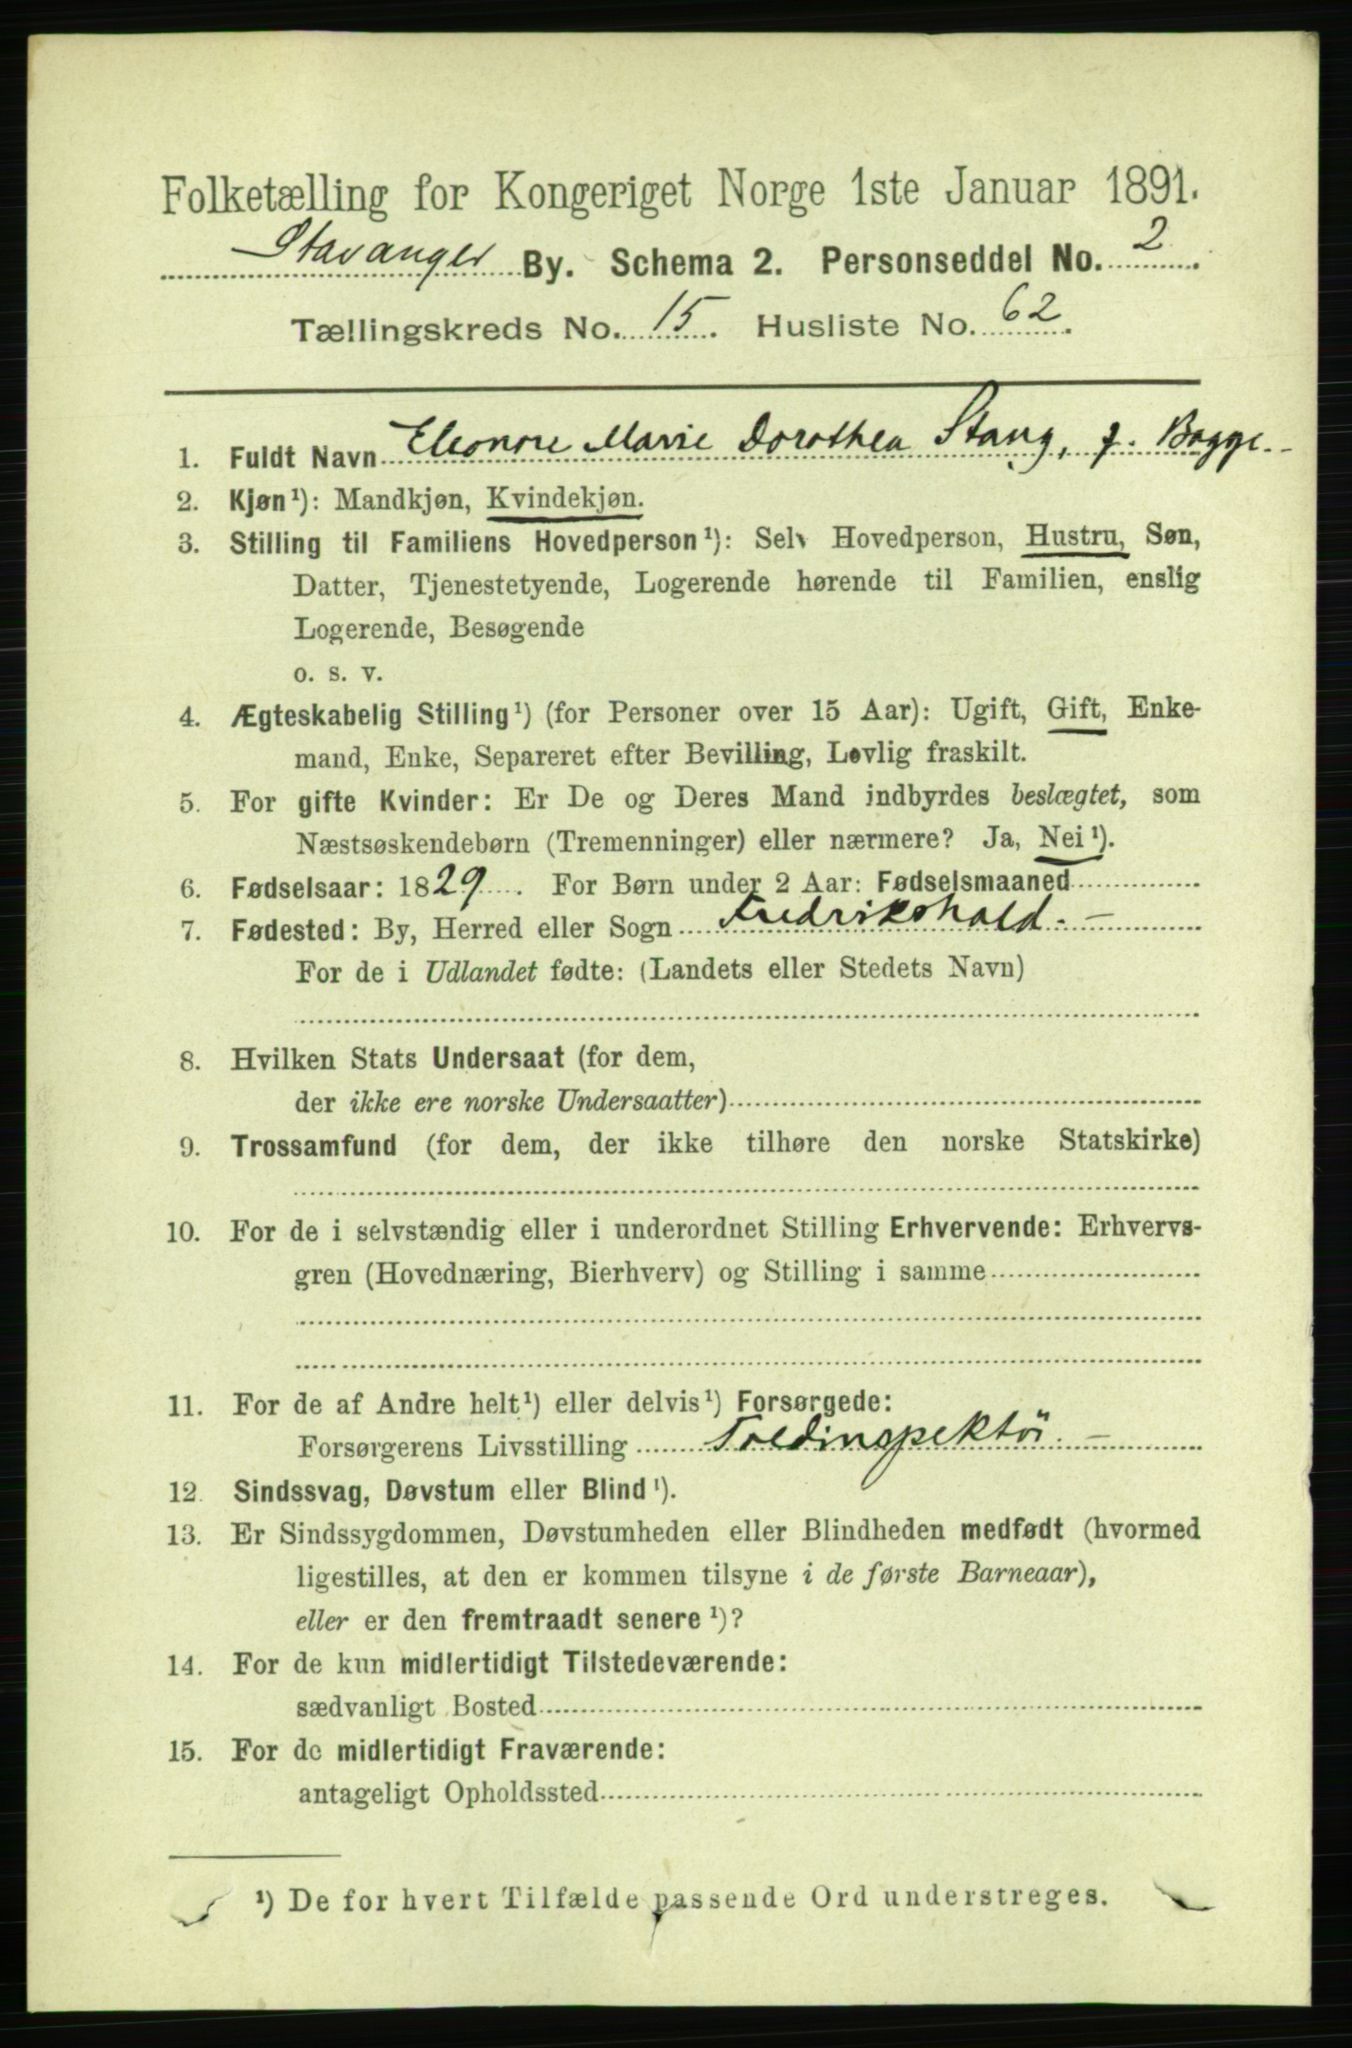 Folketælling for Kongeriget Norge 1ste Januar 1891.
Stavanger By. Schema 2. Personseddel No. 2
Tællingskreds No. 15. Husliste No. 62.
1. Fuldt Navn Eleonore Marie Dorothea Stang, f. Bagge.
2. Kjøn¹): Mandkjøn, Kvindekjøn.
3. Stilling til Familiens Hovedperson¹): Selv Hovedperson, Hustru, Søn,
Datter, Tjenestetyende, Logerende hørende til Familien, enslig
Logerende, Besøgende
o. s. v.
4. Ægteskabelig Stilling¹) (for Personer over 15 Aar): Ugift, Gift, Enke-
mand, Enke, Separeret efter Bevilling, Lovlig fraskilt.
5. For gifte Kvinder: Er De og Deres Mand indbyrdes beslægtet, som
Næstsøskendebørn (Tremenninger) eller nærmere? Ja, Nei¹).
6. Fødselsaar: 1829. For Børn under 2 Aar: Fødselsmaaned
7. Fødested: By, Herred eller Sogn Fredrikshald. —
For de i Udlandet fødte: (Landets eller Stedets Navn)
8. Hvilken Stats Undersaat (for dem,
der ikke ere norske Undersaatter)
9. Trossamfund (for dem, der ikke tilhøre den norske Statskirke)
10. For de i selvstændig eller i underordnet Stilling Erhvervende: Erhvervs-
gren (Hovednæring, Bierhverv) og Stilling i samme
11. For de af Andre helt¹) eller delvis¹) Forsørgede:
Forsørgerens Livsstilling Toldinspektör. —
12. Sindssvag, Døvstum eller Blind¹).
13. Er Sindssygdommen, Døvstumheden eller Blindheden medfødt (hvormed
ligestilles, at den er kommen tilsyne i de første Barneaar),
eller er den fremtraadt senere¹)?
14. For de kun midlertidigt Tilstedeværende:
sædvanligt Bosted
15. For de midlertidigt Fraværende:
antageligt Opholdssted
¹) De for hvert Tilfælde passende Ord understreges.